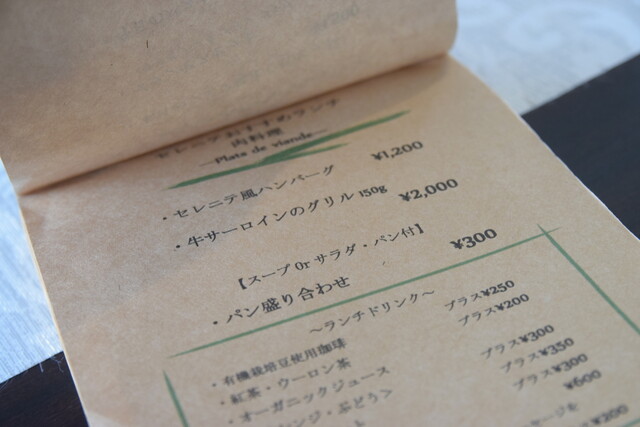 セレニテおすすめランチ
肉料理
—Plate de viande—
・セレニテ風ハンバーグ ¥1,200
・牛サーロインのグリル 150g ¥2,000
【スープ Or サラダ・パン付】
・パン盛り合わせ ¥300
～ランチドリンク～
・有機栽培豆使用珈琲 プラス¥250
・紅茶・ウーロン茶 プラス¥200
・オーガニックジュース プラス¥300
ンジ・ぶどう＞ プラス¥350
プラス¥300
¥600
¥200